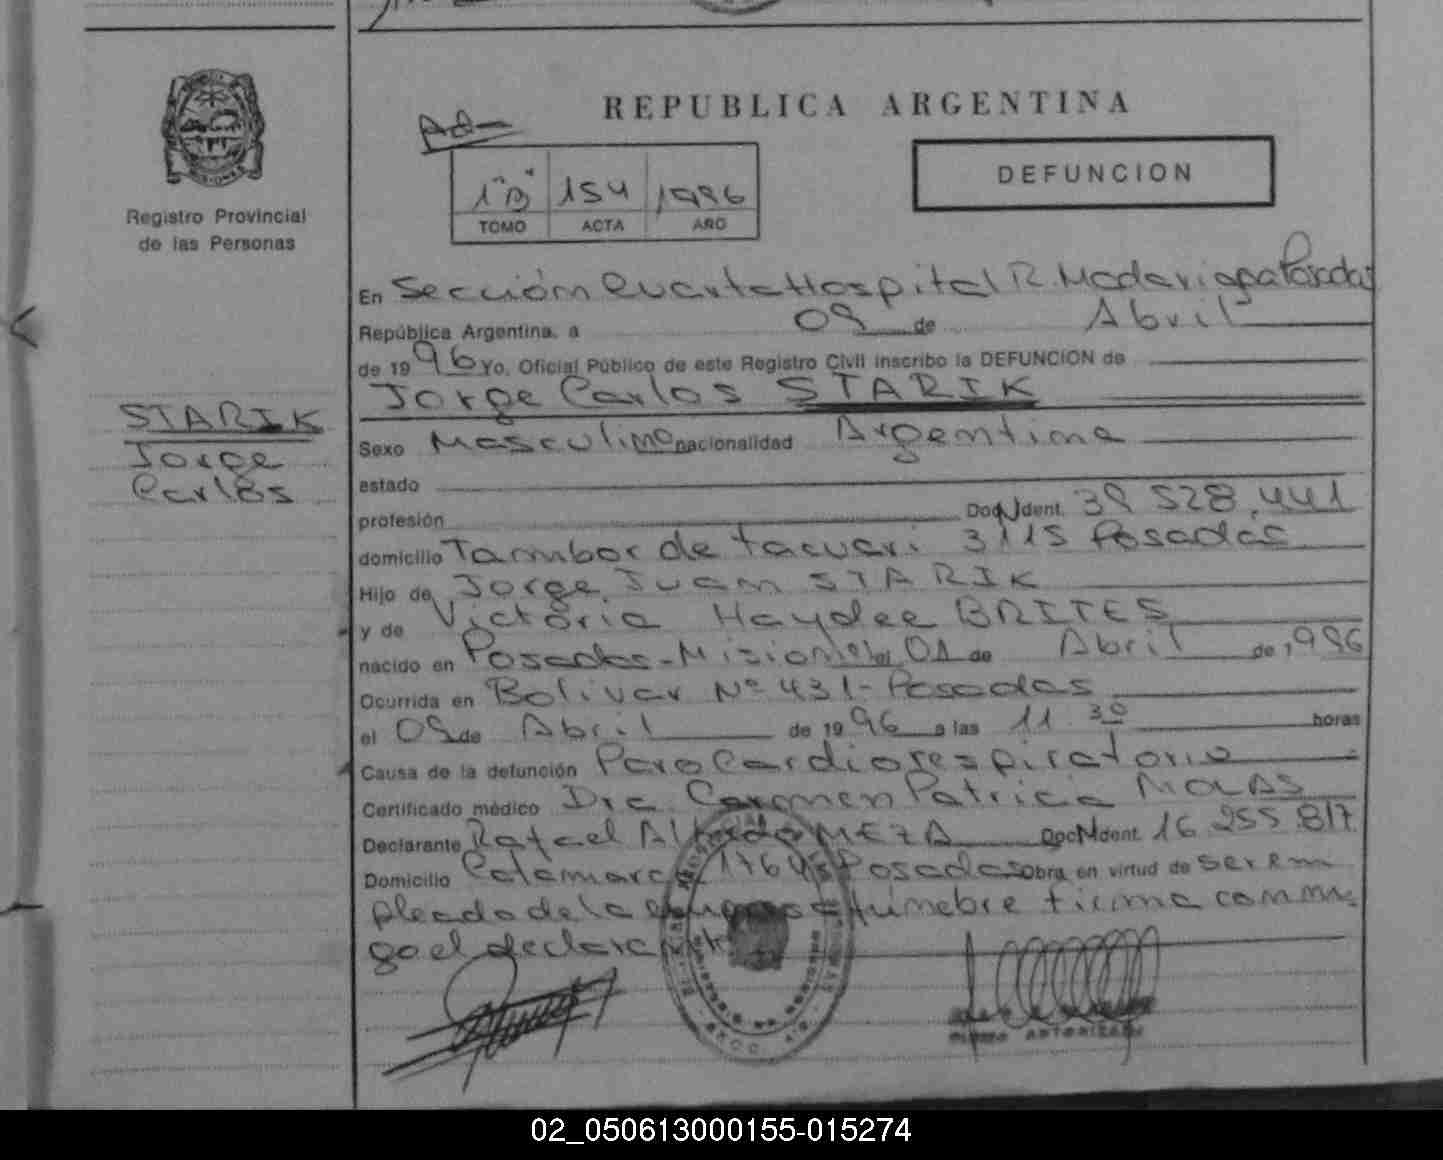 REPUBLICA ARGENTINA
DEFUNCION
1º "B" 154 1996
TOMO ACTA AÑO
MISIONES
Registro Provincial
de las Personas
STARIK
Jorge
Carlos
En Sección Cuarta Hospital R. Madariaga Posadas
República Argentina, a 09 de Abril
de 1996 Yo, Oficial Público de este Registro Civil inscribo la DEFUNCION de
Jorge Carlos STARIK
Sexo Masculino nacionalidad Argentina
estado
profesión Doc N Ident. 39 528.441
domicilio Tambor de tacuari 3115 Posadas
Hijo de Jorge Juan STARIK
y de Victoria Haydee BRITES
nacido en Posadas-Misiones el 01 de Abril de 1996
Ocurrida en Bolivar Nº 431-Posadas
el 09 de Abril de 1996 a las 11 30 horas
Causa de la defunción Paro Cardiorespiratorio
Certificado médico Dra. Carmen Patricia MOLAS
Declarante Rafael Alfredo MEZA Doc N Ident. 16 255 817
Domicilio Catamarca 1764 Posadas obra en virtud de ser em
pleado de la empresa fúnebre firma conmi
go el declarante
02_050613000155-015274